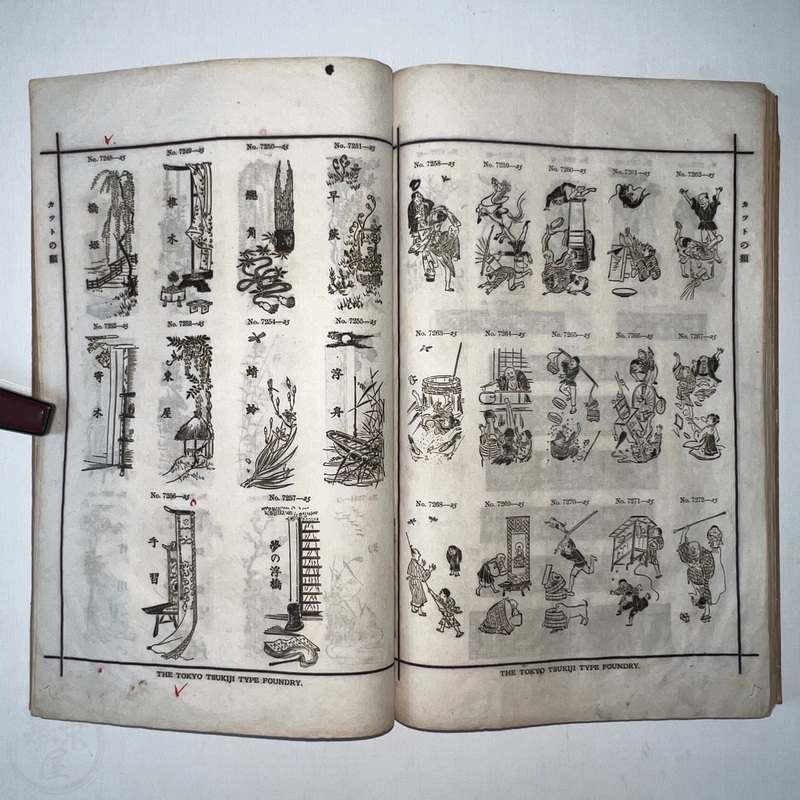 カットの類
No. 7248—25
No. 7249—25
No. 7250—25
No. 7251—25
橋姫
椎本
總角
早蕨
No. 7252—25
No. 7253—25
No. 7254—25
No. 7255—25
寄木
東屋
蜻蛉
浮舟
No. 7256—25
No. 7257—25
手習
夢の浮橋
THE TOKYO TSUKIJI TYPE FOUNDRY.
No. 7258—25
No. 7259—25
No. 7260—25
No. 7261—25
No. 7262—25
カットの類
No. 7263—25
No. 7264—25
No. 7265—25
No. 7266—25
No. 7267—25
No. 7268—25
No. 7269—25
No. 7270—25
No. 7271—25
No. 7272—25
THE TOKYO TSUKIJI TYPE FOUNDRY.